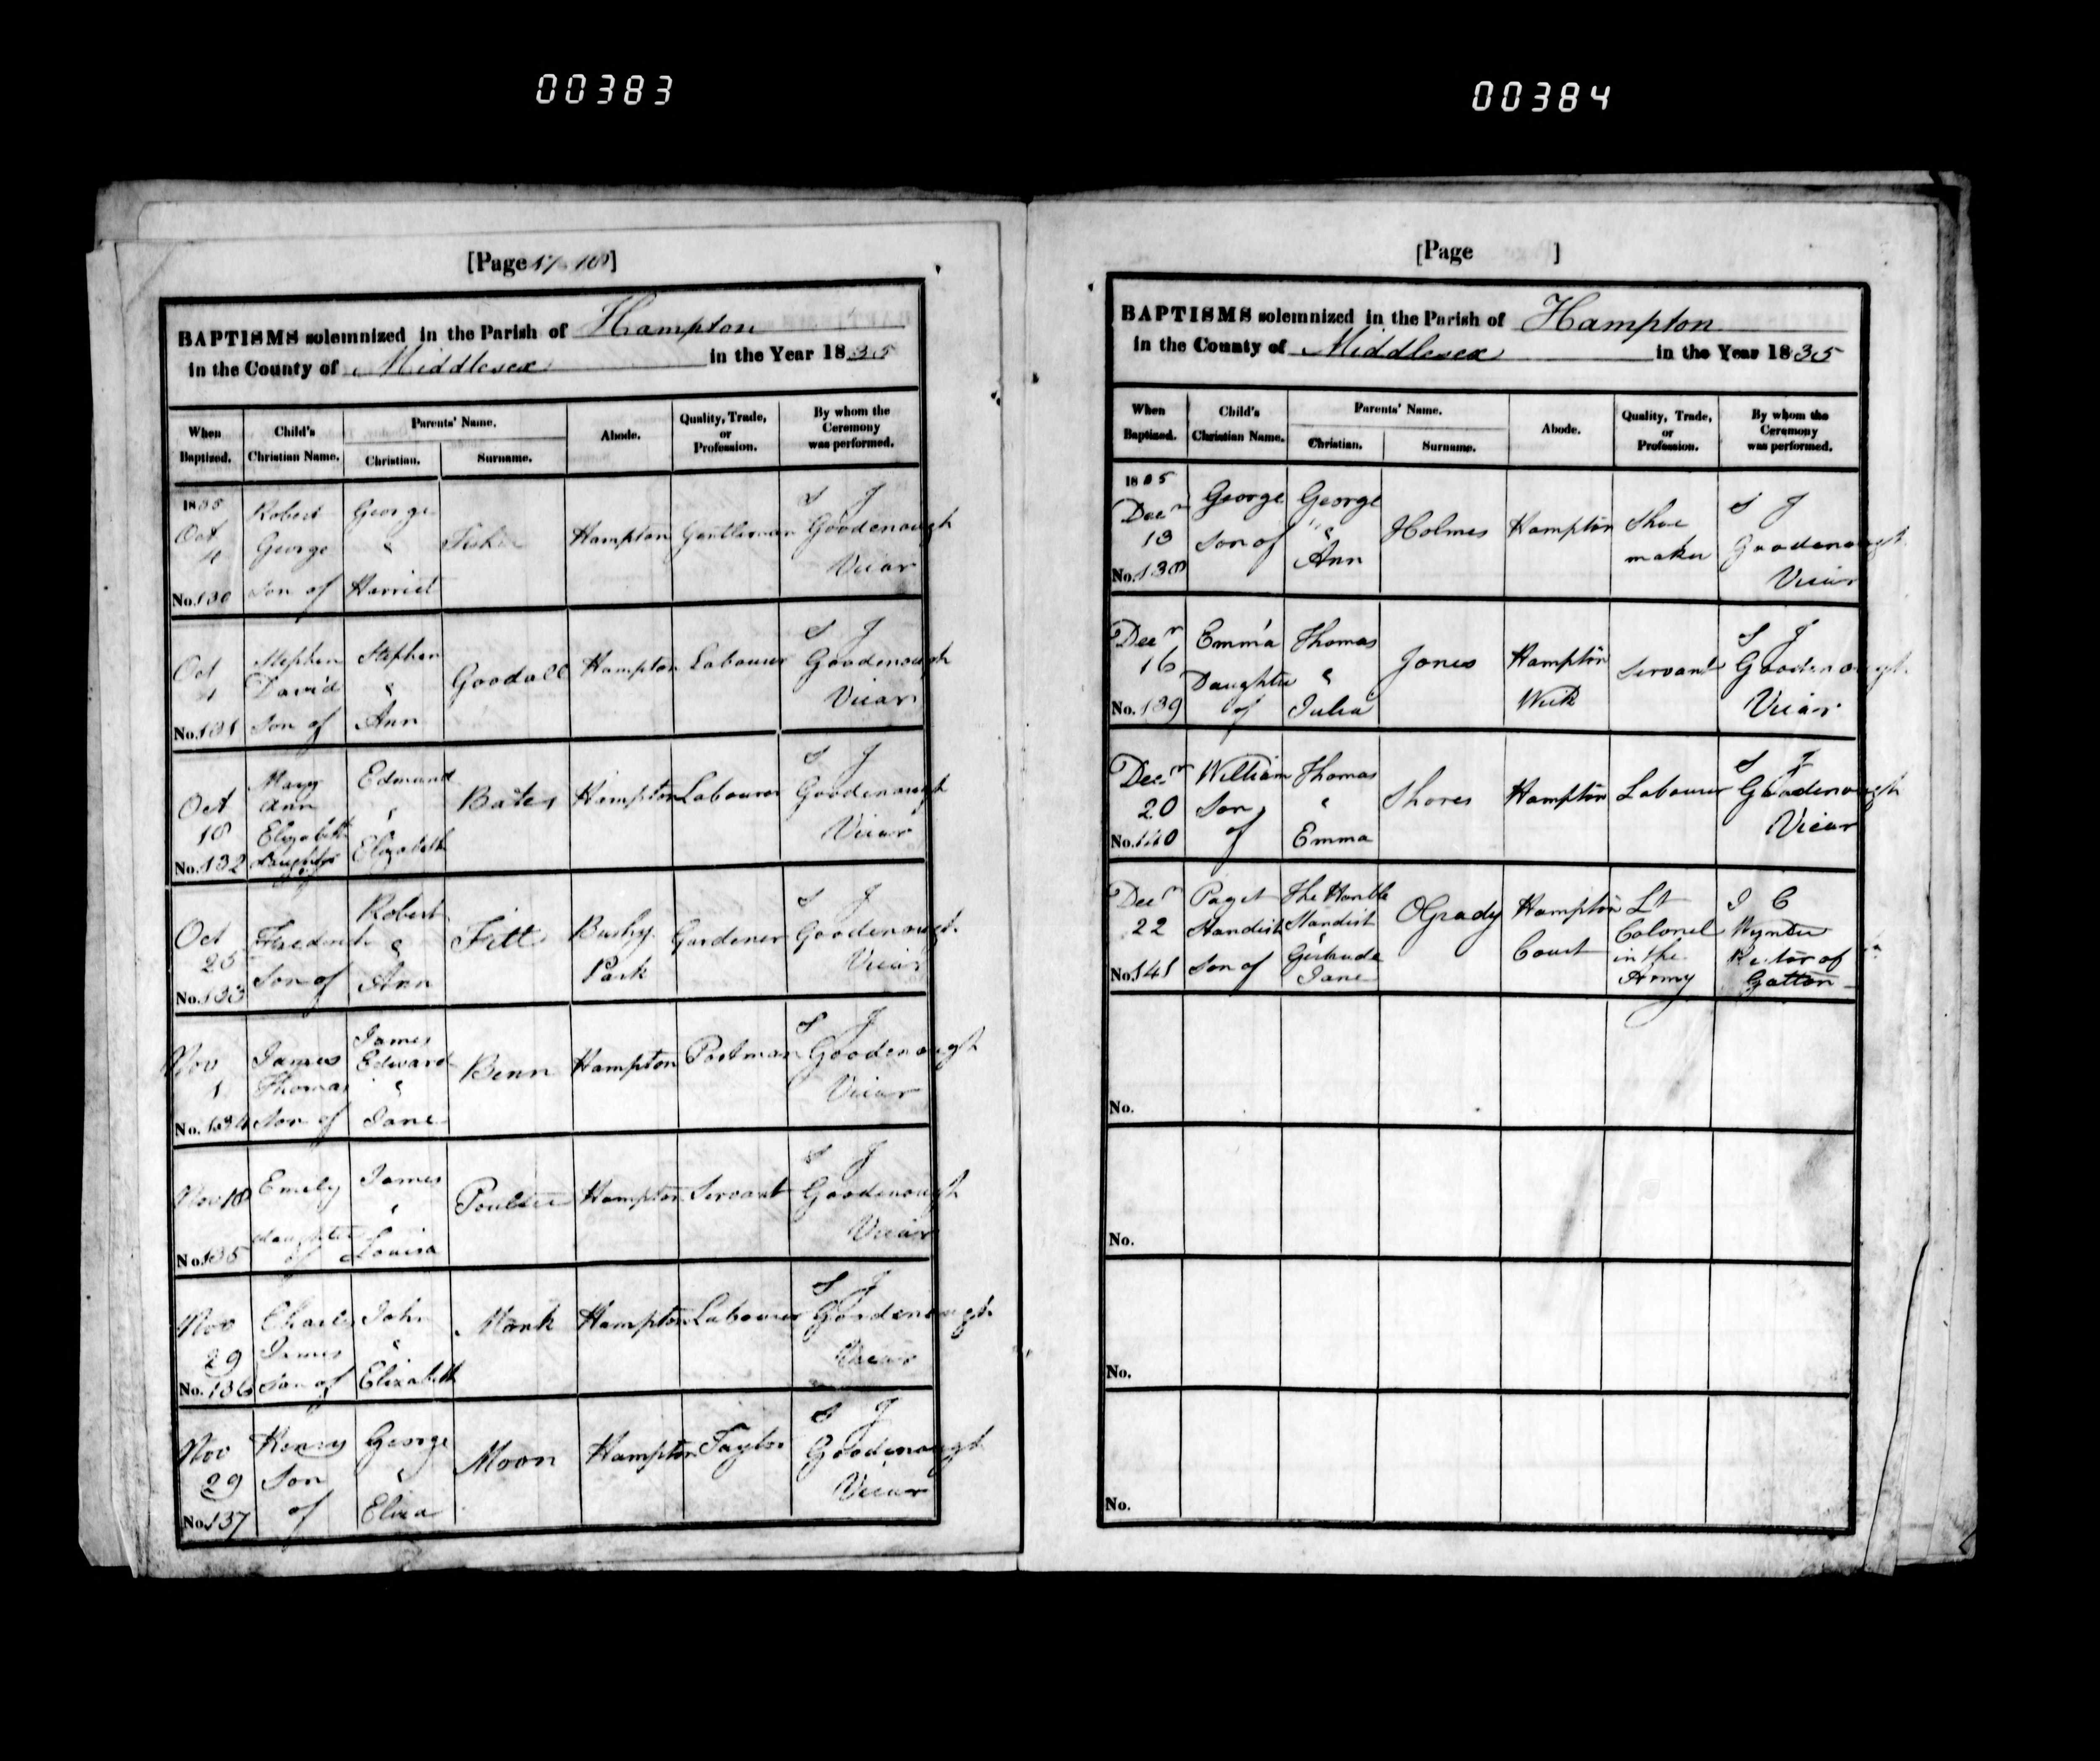 00383
00384
[Page 17 18]
BAPTISMS solemnized in the Parish of Hampton
in the County of Middlesex in the Year 1835
When Baptized. Child's Christian Name. Parents' Name. Christian. Surname. Abode. Quality, Trade, or Profession. By whom the Ceremony was performed.
1835 Oct 4 No. 130 Robert George Son of George & Harriet Hampton Gentleman S J Goodenough Vicar
Oct 4 No. 131 Stephen David Son of Stephen & Ann Goodall Hampton Labourer S J Goodenough Vicar
Oct 18 No. 132 Mary Ann Elizabeth Daughter of Edmund & Elizabeth Bates Hampton Labourer S J Goodenough Vicar
Oct 25 No. 133 Frederick Son of Robert & Ann Fitt Bushy Park Gardener S J Goodenough Vicar
Nov 1 No. 134 James Thomas Son of James Edward & Jane Benn Hampton Postman S J Goodenough Vicar
Nov 18 No. 135 Emily daughter of James & Louisa Poulter Hampton Servant S J Goodenough Vicar
Nov 29 No. 136 Charles James Son of John & Elizabeth Monk Hampton Labourer S J Goodenough Vicar
Nov 29 No. 137 Henry Son of George & Eliza Moon Hampton Taylor S J Goodenough Vicar
[Page ]
BAPTISMS solemnized in the Parish of Hampton
in the County of Middlesex in the Year 1835
When Baptized. Child's Christian Name. Parents' Name. Christian. Surname. Abode. Quality, Trade, or Profession. By whom the Ceremony was performed.
1835 Decr 13 No. 138 George Son of George & Ann Holmes Hampton Shoe maker S J Goodenough Vicar
Decr 16 No. 139 Emma Daughter of Thomas & Julia Jones Hampton Wick Servant S J Goodenough Vicar
Decr 20 No. 140 William Son of Thomas & Emma Shores Hampton Labourer S J Goodenough Vicar
Decr 22 No. 141 Paget Standish Son of The Honble Standish & Gertrude Jane OGrady Hampton Court Lt Colonel in the Army J C Wynter Rector of Gatton
No.
No.
No.
No.